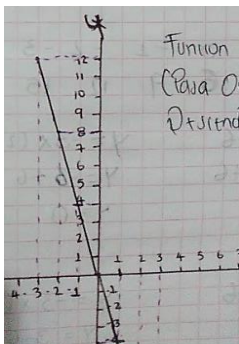 y
Funcion
(Pasa
12
11
10
9
8
7
6
5
4
3
2
1
-4 -3 -2 -1 1 2 3 4 5 6
-1
-3